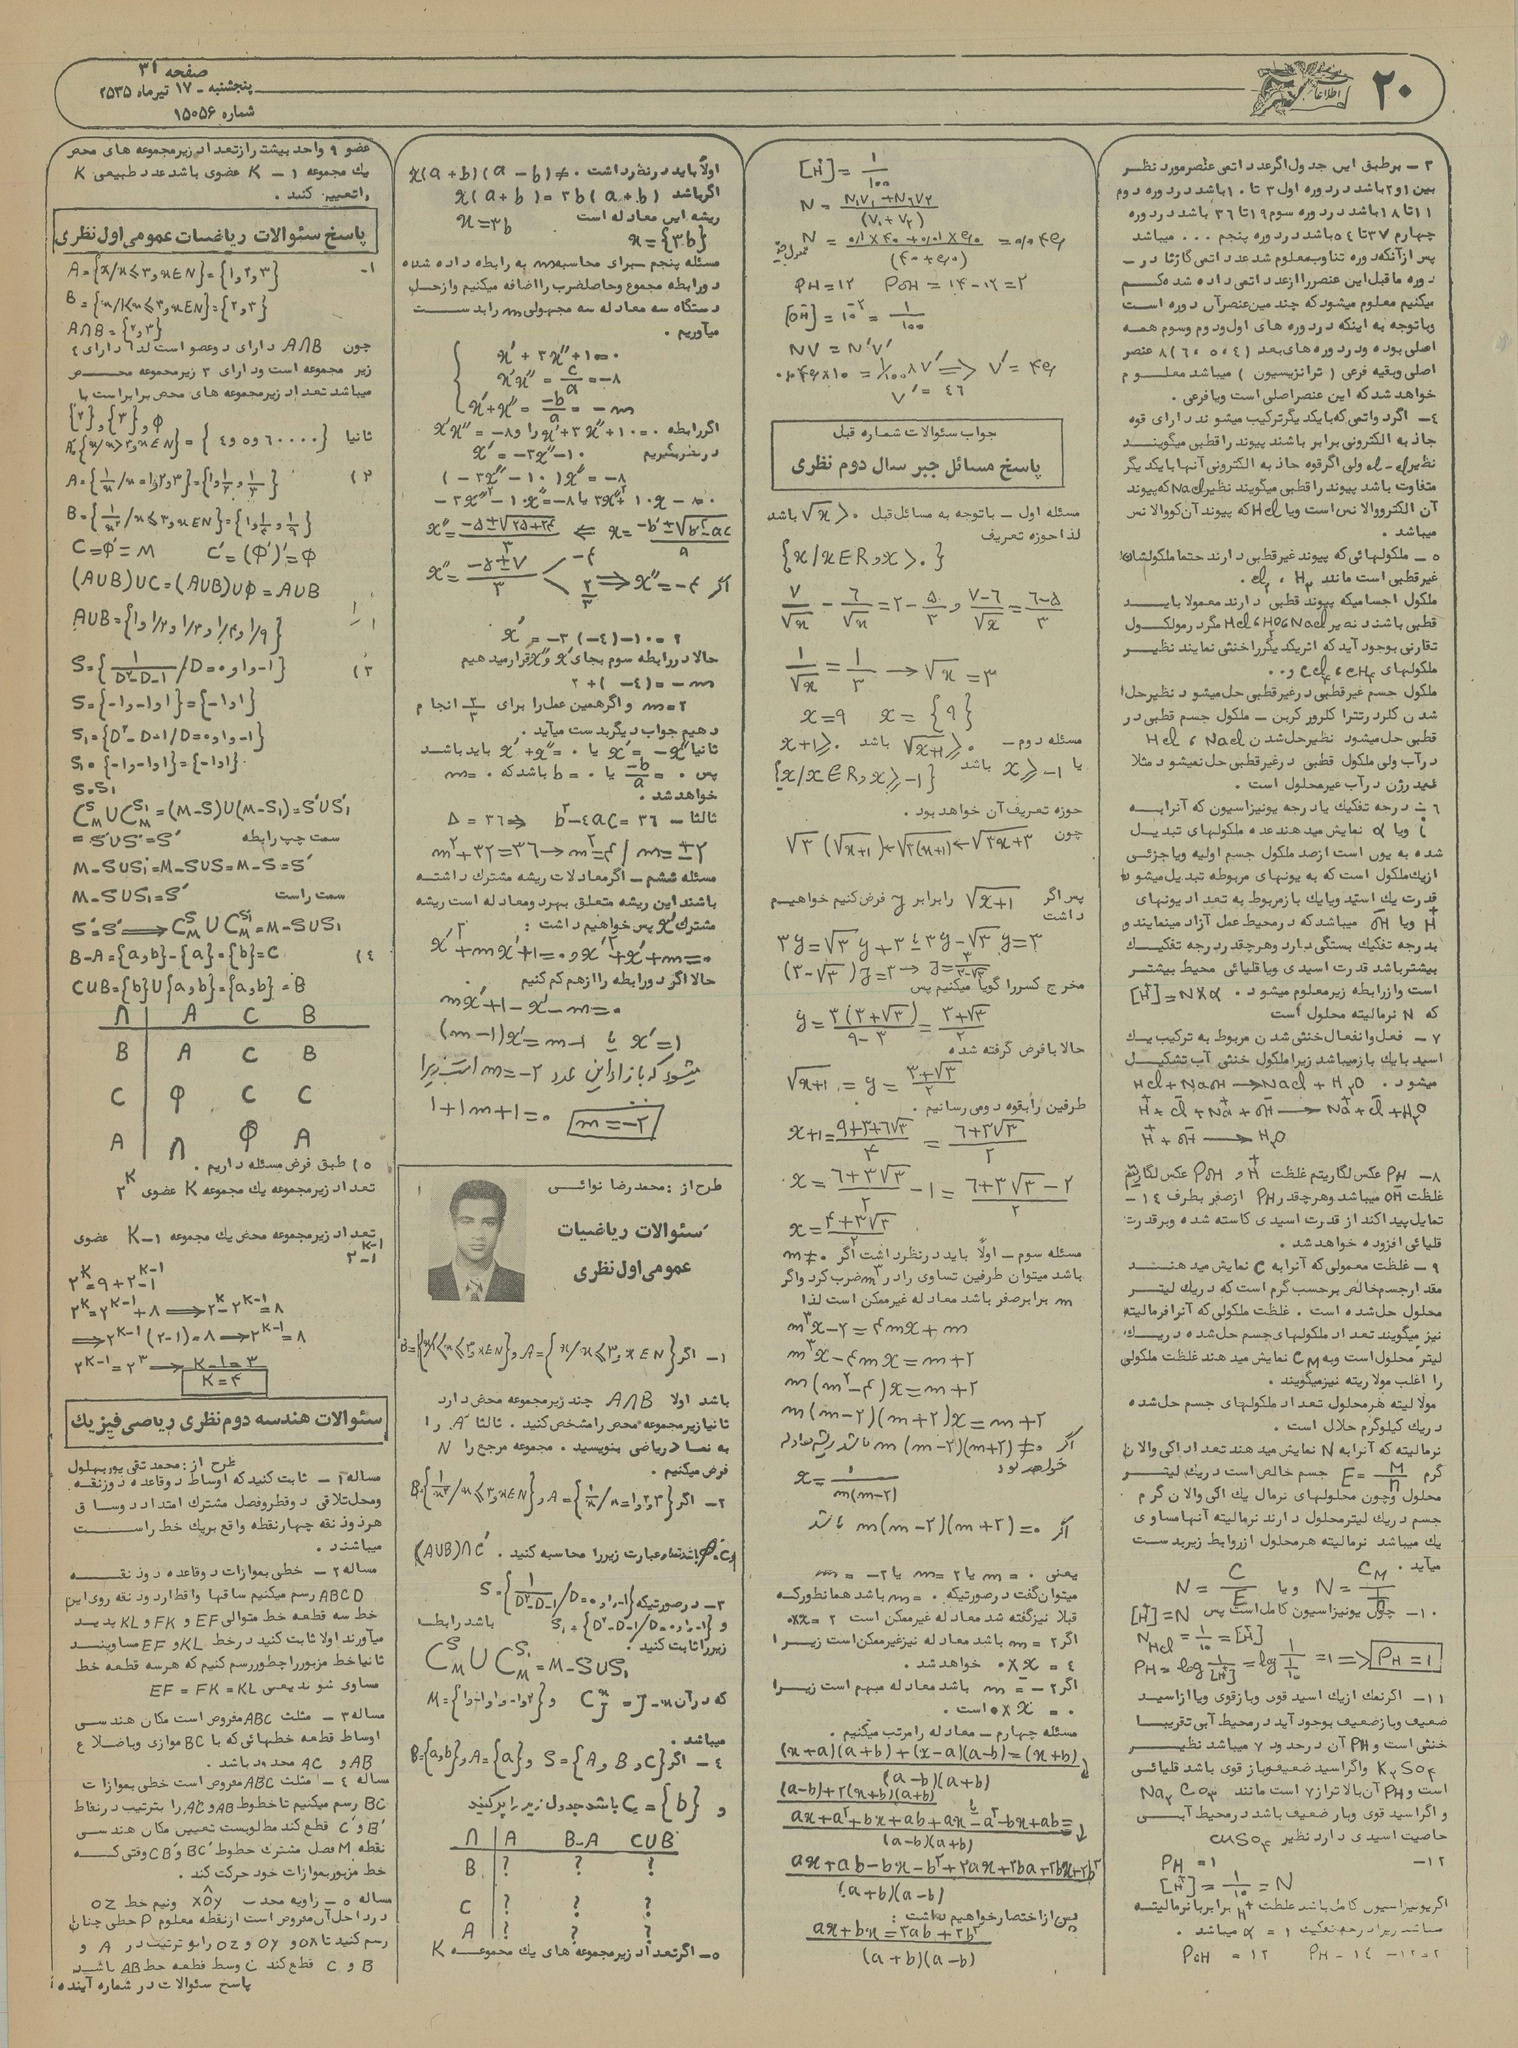 صفحه ۳۱
پنجشنبه - ۱۷ تیرماه ۲۵۳۵
شماره ۱۵۰۵۶
اطلاعات
۲۰
۳- برطبق این جدول اگرعدد اتمی عنصرمورد نظر
بین ۱و۲ باشد در دوره اول ۳ تا ۱۰ باشد در دوره دوم
۱۱ تا ۱۸ باشد در دوره سوم ۱۹ تا ۳۶ باشد در دوره
چهارم ۳۷ تا ۵۴ باشد در دوره پنجم ... میباشد
پس از آنکه دوره تناوب معلوم شد عدد اتمی گاز نا در -
دوره ماقبل این عنصر را از عدد اتمی داده شده کم
میکنیم معلوم میشود که چند مین عنصر آن دوره است
وبا توجه به اینکه در دوره های اول ودوم وسوم همه
اصلی بوده ودر دوره های بعد (۴ ، ۵ ، ۶) ۸ عنصر
اصلی وبقیه فرعی ( ترانزیسیون ) میباشد معلوم
خواهد شد که این عنصر اصلی است ویا فرعی .
٤- اگر دو اتمی که با یکدیگر ترکیب میشوند دارای قوه
جاذبه الکترونی برابر باشند پیوند را قطبی میگویند
نظیر cl-cl ولی اگرقوه جاذبه الکترونی آنها با یکدیگر
متفاوت باشد پیوند را قطبی میگویند نظیر Nacl که پیوند
آن الکترووالانس است ویا Hcl که پیوند آن کووالانس
میباشد .
۵- ملکولهائی که پیوند غیرقطبی دارند حتما ملکولشان
غیرقطبی است مانند H₂ ، cl₂ .
ملکول اجسامیکه پیوند قطبی دارند معمولا باید
قطبی باشند نظیر Hcl ، H₂O ، Nacl مگر در مولکول
تقارنی بوجود آید که اثر یکدیگر را خنثی نمایند نظیر
ملکولهای ccl₄ ، cH₄ و ..
ملکول جسم غیرقطبی در غیرقطبی حل میشود نظیر حل
شدن کلر در تترا کلرور کربن - ملکول جسم قطبی در
قطبی حل میشود نظیر حل شدن Hcl ، Nacl
در آب ولی ملکول قطبی در غیرقطبی حل نمیشود مثلا
ئیدرژن در آب غیرمحلول است .
٦- درجه تفکیک یا درجه یونیزاسیون که آنرا به
i ویا α نمایش میدهند عده ملکولهای تبدیل
شده به یون است از صد ملکول جسم اولیه ویا جزئی
از یک ملکول است که به یونهای مربوطه تبدیل میشود
قدرت یک اسید ویا یک باز مربوط به تعداد یونهای
H⁺ ویا OH⁻ میباشد که در محیط عمل آزاد مینمایند و
بدرجه تفکیک بستگی دارد وهرچقدر درجه تفکیک
بیشتر باشد قدرت اسیدی ویا قلیائی محیط بیشتر
است واز رابطه زیر معلوم میشود . [H⁺]=N×α
که N نرمالیته محلول است
۷- فعل وانفعال خنثی شدن مربوط به ترکیب یک
اسید با یک باز میباشد زیرا ملکول خنثی آب تشکیل
میشود . Hcl + NaOH → Nacl + H₂O
H⁺ + cl⁻ + Na⁺ + OH⁻ → Na⁺ + cl⁻ + H₂O
H⁺ + OH⁻ → H₂O
۸- PH عکس لگاریتم غلظت H⁺ و POH عکس لگاریتم
غلظت OH⁻ میباشد وهرچقدر PH از صفر بطرف ۱۴-
تمایل پیدا کند از قدرت اسیدی کاسته شده وبرقدرت
قلیائی افزوده خواهد شد .
۹- غلظت معمولی که آنرا به C نمایش میدهند
مقدار جسم خالص برحسب گرم است که در یک لیتر
محلول حل شده است . غلظت ملکولی که آنرا فرمالیته
نیز میگویند تعداد ملکولهای جسم حل شده در یک
لیتر محلول است وبه CM نمایش میدهند غلظت ملکولی
را اغلب مولاریته نیز میگویند .
مولالیته هر محلول تعداد ملکولهای جسم حل شده
در یک کیلوگرم حلال است .
نرمالیته که آنرا به N نمایش میدهند تعداد اکی والان
گرم E = M/n جسم خالص است در یک لیتر
محلول وچون محلولهای نرمال یک اکی والان گرم
جسم در یک لیتر محلول دارند نرمالیته آنها مساوی
یک میباشد نرمالیته هر محلول از روابط زیر بدست
میآید .
N = C/E ویا N =
۱۰- چون یونیزاسیون کامل است پس [H⁺]=N
N Hcl = ۱/۱۰ = [H⁺]
PH = log ۱/[H⁺] = log ۱/(۱/۱۰) = ۱ => PH = ۱
۱۱- اگر نمک از یک اسید قوی وباز قوی ویا از اسید
ضعیف وباز ضعیف بوجود آید در محیط آبی تقریبا
خنثی است و PH آن در حدود ۷ میباشد نظیر
K₂SO₄ واگر اسید ضعیف وباز قوی باشد قلیائی
است و PH آن بالاتر از ۷ است مانند Na₂CO₃
واگر اسید قوی وباز ضعیف باشد در محیط آبی
حاصیت اسیدی دارد نظیر CuSO₄
۱۲- PH = ۱
[H⁺] = ۱/۱۰ = N
اگر یونیزاسیون کامل باشد غلظت H⁺ برابر با نرمالیته
میباشد زیرا درجه تفکیک α = ۱ میباشد .
POH = ۱۲ PH = ۱۴ - ۱۲ = ۲
[H⁺] = ۱/۱۰۰
N = (N₁V₁ + N₂V₂)/(V₁ + V₂)
PH = ۱۲ POH = ۱۴ - ۱۲ = ۲
[OH⁻] = ۱۰⁻² = ۱/۱۰۰
NV = N′V′
جواب سئوالات شماره قبل
پاسخ مسائل جبر سال دوم نظری
مسئله اول - باتوجه به مسائل قبل √x > ۰ باشد
لذا حوزه تعریف
{x/x∈R, x > ۰}
۷/√x - ۶/√x = ۲ - ۵/۳ , (۷-۶)/√x = (۶-۵)/۳
۱/√x = ۱/۳ → √x = ۳
x = ۹ x = {۹}
مسئله دوم - √(x+۱) ⩾ ۰ باشد x+۱ ⩾ ۰
یا x ⩾ -۱ باشد {x/x∈R, x ⩾ -۱}
حوزه تعریف آن خواهد بود .
چون √۳(√(x+۱)) ← √۳(x+۱) ← √(۳x+۳)
پس اگر √(x+۱) را برابر y فرض کنیم خواهیم
داشت
۳y = √۳ y + ۳ یا ۳y - √۳ y = ۳
(۳-√۳)y = ۳ → y = ۳/(۳-√۳)
مخرج کسر را گویا میکنیم پس
y = ۳(۳+√۳)/(۹-۳) = (۳+√۳)/۲
حالا با فرض گرفته شده
√(x+۱) = y = (۳+√۳)/۲
طرفین را بقوه دو می رسانیم .
x+۱ = (۹+۳+۶√۳)/۴ = (۶+۳√۳)/۲
x = (۶+۳√۳)/۲ - ۱ = (۶+۳√۳-۲)/۲
x = (۴+۳√۳)/۲
مسئله سوم - اولاً باید در نظر داشت اگر m ≠ ۰
باشد میتوان طرفین تساوی را در m³ ضرب کرد واگر
m برابر صفر باشد معادله غیرممکن است لذا
m³x - ۲ = ۴mx + m
m³x - ۴mx = m + ۲
m(m² - ۴)x = m + ۲
m(m-۲)(m+۲)x = m + ۲
اگر m(m-۲)(m+۲) ≠ ۰ باشد ریشه معادله
خواهد بود
x = ۱/m(m-۲)
اگر m(m-۲)(m+۲) = ۰ باشد
یعنی m = ۰ یا m = ۲ یا m = -۲
میتوان گفت در صورتیکه m = ۰ باشد همانطور که
قبلا نیز گفته شد معادله غیرممکن است ۰×x = ۲
اگر m = ۲ باشد معادله نیز غیرممکن است زیرا
۰×x = ۴ خواهد شد .
اگر m = -۲ باشد معادله مبهم است زیرا
۰×x = ۰ است .
مسئله چهارم - معادله را مرتب میکنیم .
پس از اختصار خواهیم داشت :
(ax + bx = ۳ab + ۳b²)/(a+b)(a-b)
اولاً باید در نظر داشت . x(a+b)(a-b) ≠ ۰
اگر باشد x(a+b) = ۳b(a+b)
ریشه این معادله است x = ۳b
x = {۳b}
مسئله پنجم - برای محاسبه m به رابطه داده شده
دو رابطه مجموع وحاصلضرب را اضافه میکنیم واز حل
دستگاه سه معادله سه مجهولی m را بدست
میآوریم .
x′ + ۳x″ + ۱۰ = ۰
x′x″ = c/a = -۸
x′ + x″ = -b/a = -m
اگر رابطه x′ + ۳x″ + ۱۰ = ۰ را و x′x″ = -۸
در نظر بگیریم x′ = -۳x″ - ۱۰
(-۳x″ - ۱۰)x″ = -۸
-۳x″² - ۱۰x″ = -۸ یا ۳x″² + ۱۰x″ - ۸ = ۰
x″ = (-۵±√(۲۵+۲۴))/۳ <= x = (-b′±√(b′²-ac))/a
x″ = (-۵±۷)/۳ -۴ ۲/۳ => اگر x″ = -۴
x′ = -۳(-۴) - ۱۰ = ۲
حالا در رابطه سوم بجای x′ و x″ قرار میدهیم
-m = (-۴) + ۲
m = ۲ واگر همین عمل را برای ۲/۳ انجام
دهیم جواب دیگر بدست میآید .
ثانیا x′ = -x″ یا x′ + x″ = ۰ باید باشد
پس -b/a = ۰ یا b = ۰ باشد که m = ۰
خواهد شد .
ثالثا - Δ = ۳۶ => b² - ٤ac = ۳۶
m² + ۳۲ = ۳۶ → m² = ۴ / m = ±۲
مسئله ششم - اگر معادلات ریشه مشترک داشته
باشند این ریشه متعلق بهر دو معادله است ریشه
مشترک x′ پس خواهیم داشت :
x′² + mx′ + ۱ = ۰ , x′² + x′ + m = ۰
حالا اگر دو رابطه را از هم کم کنیم .
mx′ + ۱ - x′ - m = ۰
(m-۱)x′ = m-۱ یا x′ = ۱
میشود که بازاء این عدد m = -۲ است زیرا
۱ + ۱m + ۱ = ۰ m = -۲
طرح از : محمدرضا نوائی
سئوالات ریاضیات
عمومی اول نظری
۱- اگر A = {x/x⩽۳, x∈N} و B = {x/۱<x⩽۳, x∈N}
باشد اولا A∩B چند زیرمجموعه محض دارد
ثانیا زیرمجموعه محض را مشخص کنید . ثالثا A′ را
به نماد ریاضی بنویسید . مجموعه مرجع را N
فرض میکنیم .
۲- اگر A = {۱/x / x = ۱,۲,۳} و B = {۱/x² / x⩽۳, x∈N}
باشد عبارت زیر را محاسبه کنید . (A∪B)∩C′
۳- در صورتیکه S = {۱/(D²-D-۱) / D = ۰,۱,-۱}
و S₁ = {D²-D-۱ / D = ۰,۱,-۱} باشد رابطه
زیر را ثابت کنید :
C_M^S ∪ C_M^S₁ = M - S∪S₁
که در آن
میباشد .
٤- اگر S = {A, B, C} و A = {a} و B = {a,b}
و C = {b} باشد جدول زیر را پر کنید
∩ | A B-A C∪B
B | ? ? ?
C | ? ? ?
A | ? ? ?
۵- اگر تعداد زیرمجموعه های یک مجموعه K
عضو ۹ واحد بیشتر از تعداد زیرمجموعه های محض
یک مجموعه K - ۱ عضوی باشد عدد طبیعی K
را تعیین کنید .
پاسخ سئوالات ریاضیات عمومی اول نظری
۱- A = {x/x⩽۳, x∈N} = {۱,۲,۳}
B = {x/۱<x⩽۳, x∈N} = {۲,۳}
A∩B = {۲,۳}
چون A∩B دارای دو عضو است لذا دارای ٤
زیر مجموعه است ودارای ۳ زیرمجموعه محض
میباشد تعداد زیرمجموعه های محض برابر است با
{۲} , {۳} , φ
ثانیا A′ = {x/x>۳, x∈N} = {۴ و ۵ و ۶ ....}
۲) A = {۱/x / x = ۱,۲,۳} = {۱, ۱/۲, ۱/۳}
B = {۱/x² / x⩽۳, x∈N} = {۱, ۱/۴, ۱/۹}
C = φ′ = M C′ = (φ′)′ = φ
(A∪B)∪C = (A∪B)∪φ = A∪B
A∪B = {۱ و ۱/۲ و ۱/۳ و ۱/۴ و ۱/۹}
۳) S = {۱/(D²-D-۱) / D = ۰ و ۱ و -۱}
S = {-۱ و -۱ و ۱} = {-۱ و ۱}
S₁ = {D²-D-۱ / D = ۰ و ۱ و -۱}
S₁ = {-۱ و -۱ و ۱} = {-۱ و ۱}
S = S₁
C_M^S ∪ C_M^S₁ = (M-S)∪(M-S₁) = S′∪S′₁
= S′∪S′ = S′ سمت چپ رابطه
M - S∪S₁ = M - S∪S = M - S = S′
M - S∪S₁ = S′ سمت راست
S′ = S′ => C_M^S ∪ C_M^S₁ = M - S∪S₁
٤) B-A = {a,b} - {a} = {b} = C
C∪B = {b}∪{a,b} = {a,b} = B
∩ | A C B
B | A C B
C | φ C C
A | A φ A
۵) طبق فرض مسئله داریم .
تعداد زیرمجموعه یک مجموعه K عضوی ۲^K
تعداد زیرمجموعه محض یک مجموعه K-۱ عضوی
۲^(K-۱) - ۱
۲^K = ۹ + ۲^(K-۱) - ۱
۲^K = ۲^(K-۱) + ۸ => ۲^K - ۲^(K-۱) = ۸
=> ۲^(K-۱)(۲-۱) = ۸ → ۲^(K-۱) = ۸
۲^(K-۱) = ۲³ → K-۱ = ۳
K = ۴
سئوالات هندسه دوم نظری ریاضی فیزیک
طرح از : محمد تقی پوربهلول
مساله ۱- ثابت کنید که اوساط دو قاعده ذوزنقه
ومحل تلاقی دو قطر وفصل مشترک امتداد دو ساق
هر ذوزنقه چهار نقطه واقع بریک خط راست
میباشند .
مساله ۲- خطی بموازات دو قاعده ذوزنقه
ABCD رسم میکنیم ساقها واقطار ذوزنقه روی این
خط سه قطعه خط متوالی EF و FK و KL پدید
میآورند اولا ثابت کنید در خط KL و EF مساویند
ثانیا خط مزبور را چطور رسم کنیم که هر سه قطعه خط
مساوی شوند یعنی EF = FK = KL
مساله ۳- مثلث ABC مفروض است مکان هندسی
اوساط قطعه خطهائی که با BC موازی وباضلاع
AB و AC محدود باشد .
مساله ٤- مثلث ABC مفروض است خطی بموازات
BC رسم میکنیم تا خطوط AB و AC را بترتیب در نقاط
B′ و C′ قطع کند مطلوبست تعیین مکان هندسی
نقطه M فصل مشترک خطوط BC′ و CB′ وقتی که
خط مزبور بموازات خود حرکت کند .
مساله ۵- زاویه محدب xÔy ونیم خط OZ
در داخل آن مفروض است از نقطه معلوم P خطی چنان
رسم کنید تا OX و OY و OZ را بترتیب در A و
B و C قطع کند وسط قطعه خط AB باشد
پاسخ سئوالات در شماره آینده